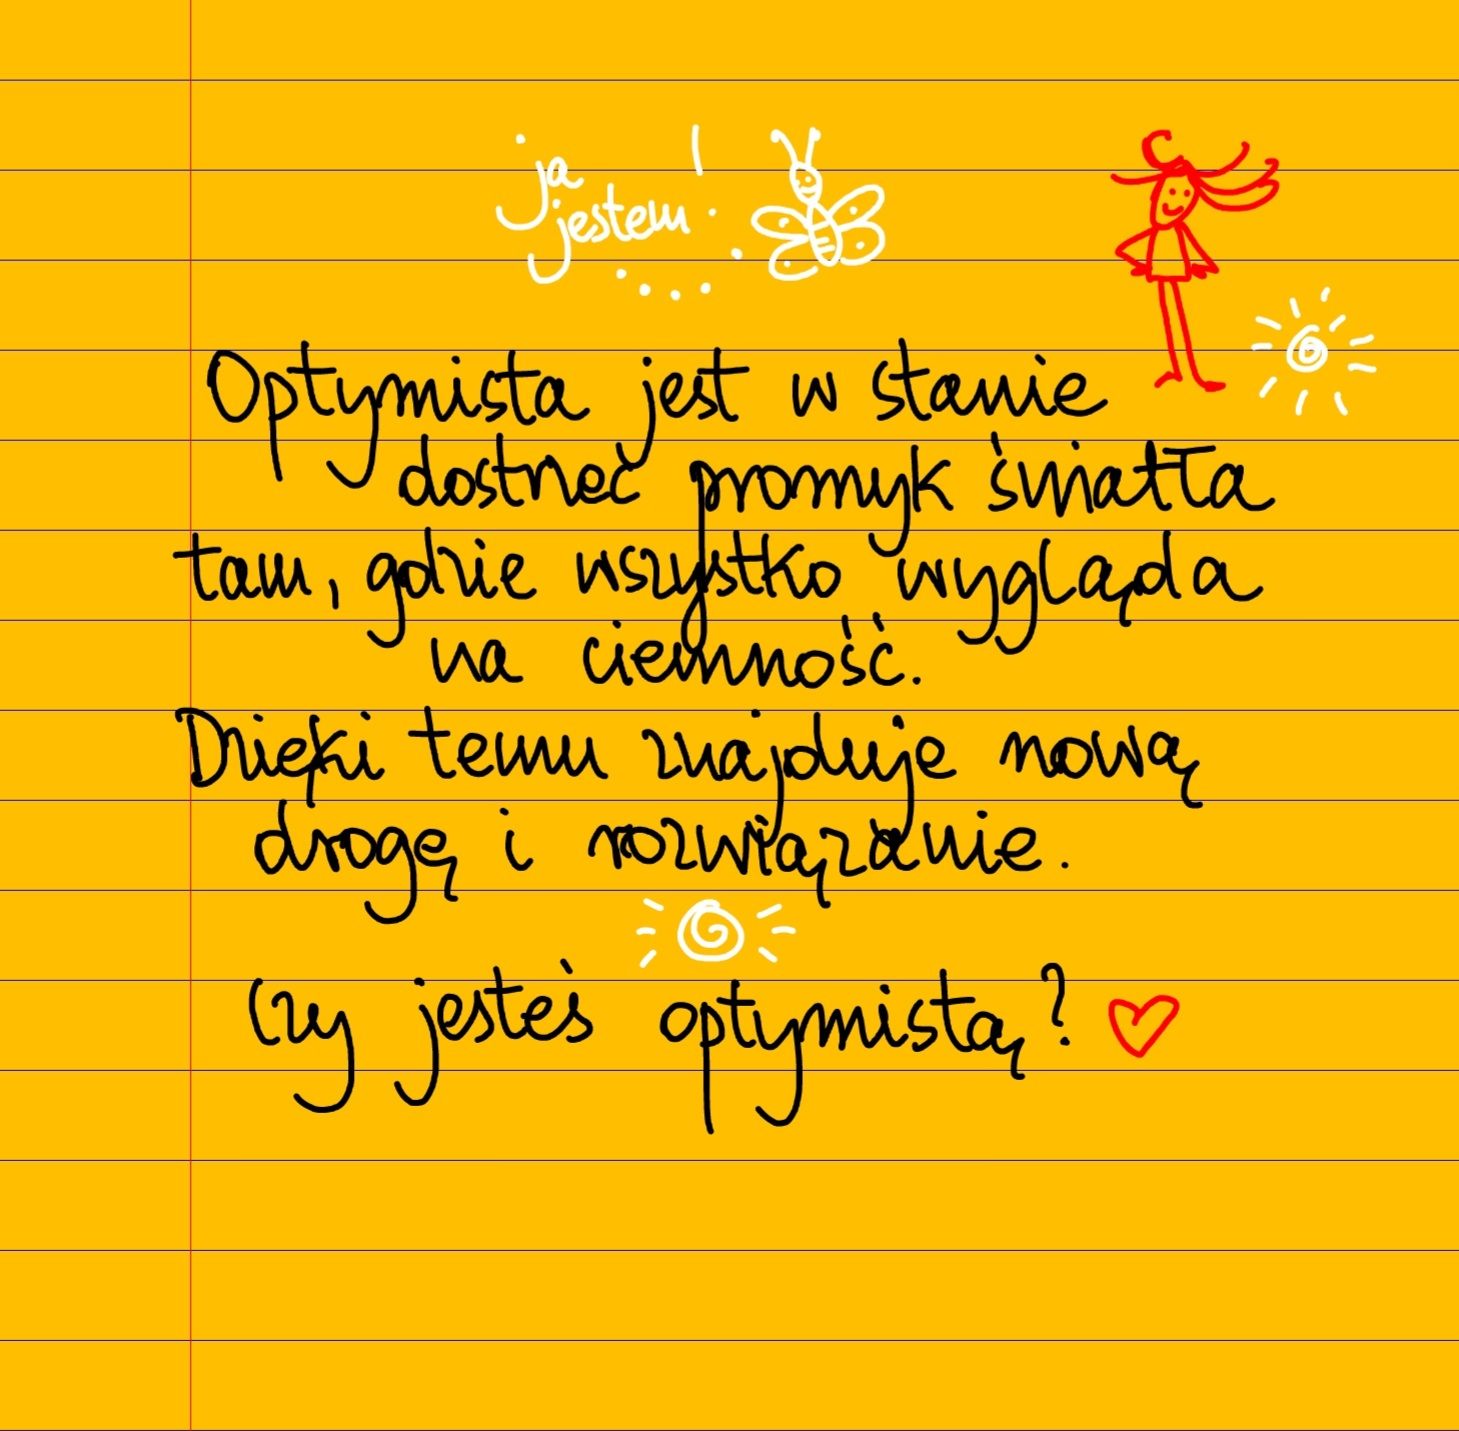 ja
jestem!
Optymista jest w stanie
dostrzec promyk światła
tam, gdzie wszystko wygląda
na ciemność.
Dzięki temu znajduje nową
drogę i rozwiązanie.
Czy jesteś optymistą?